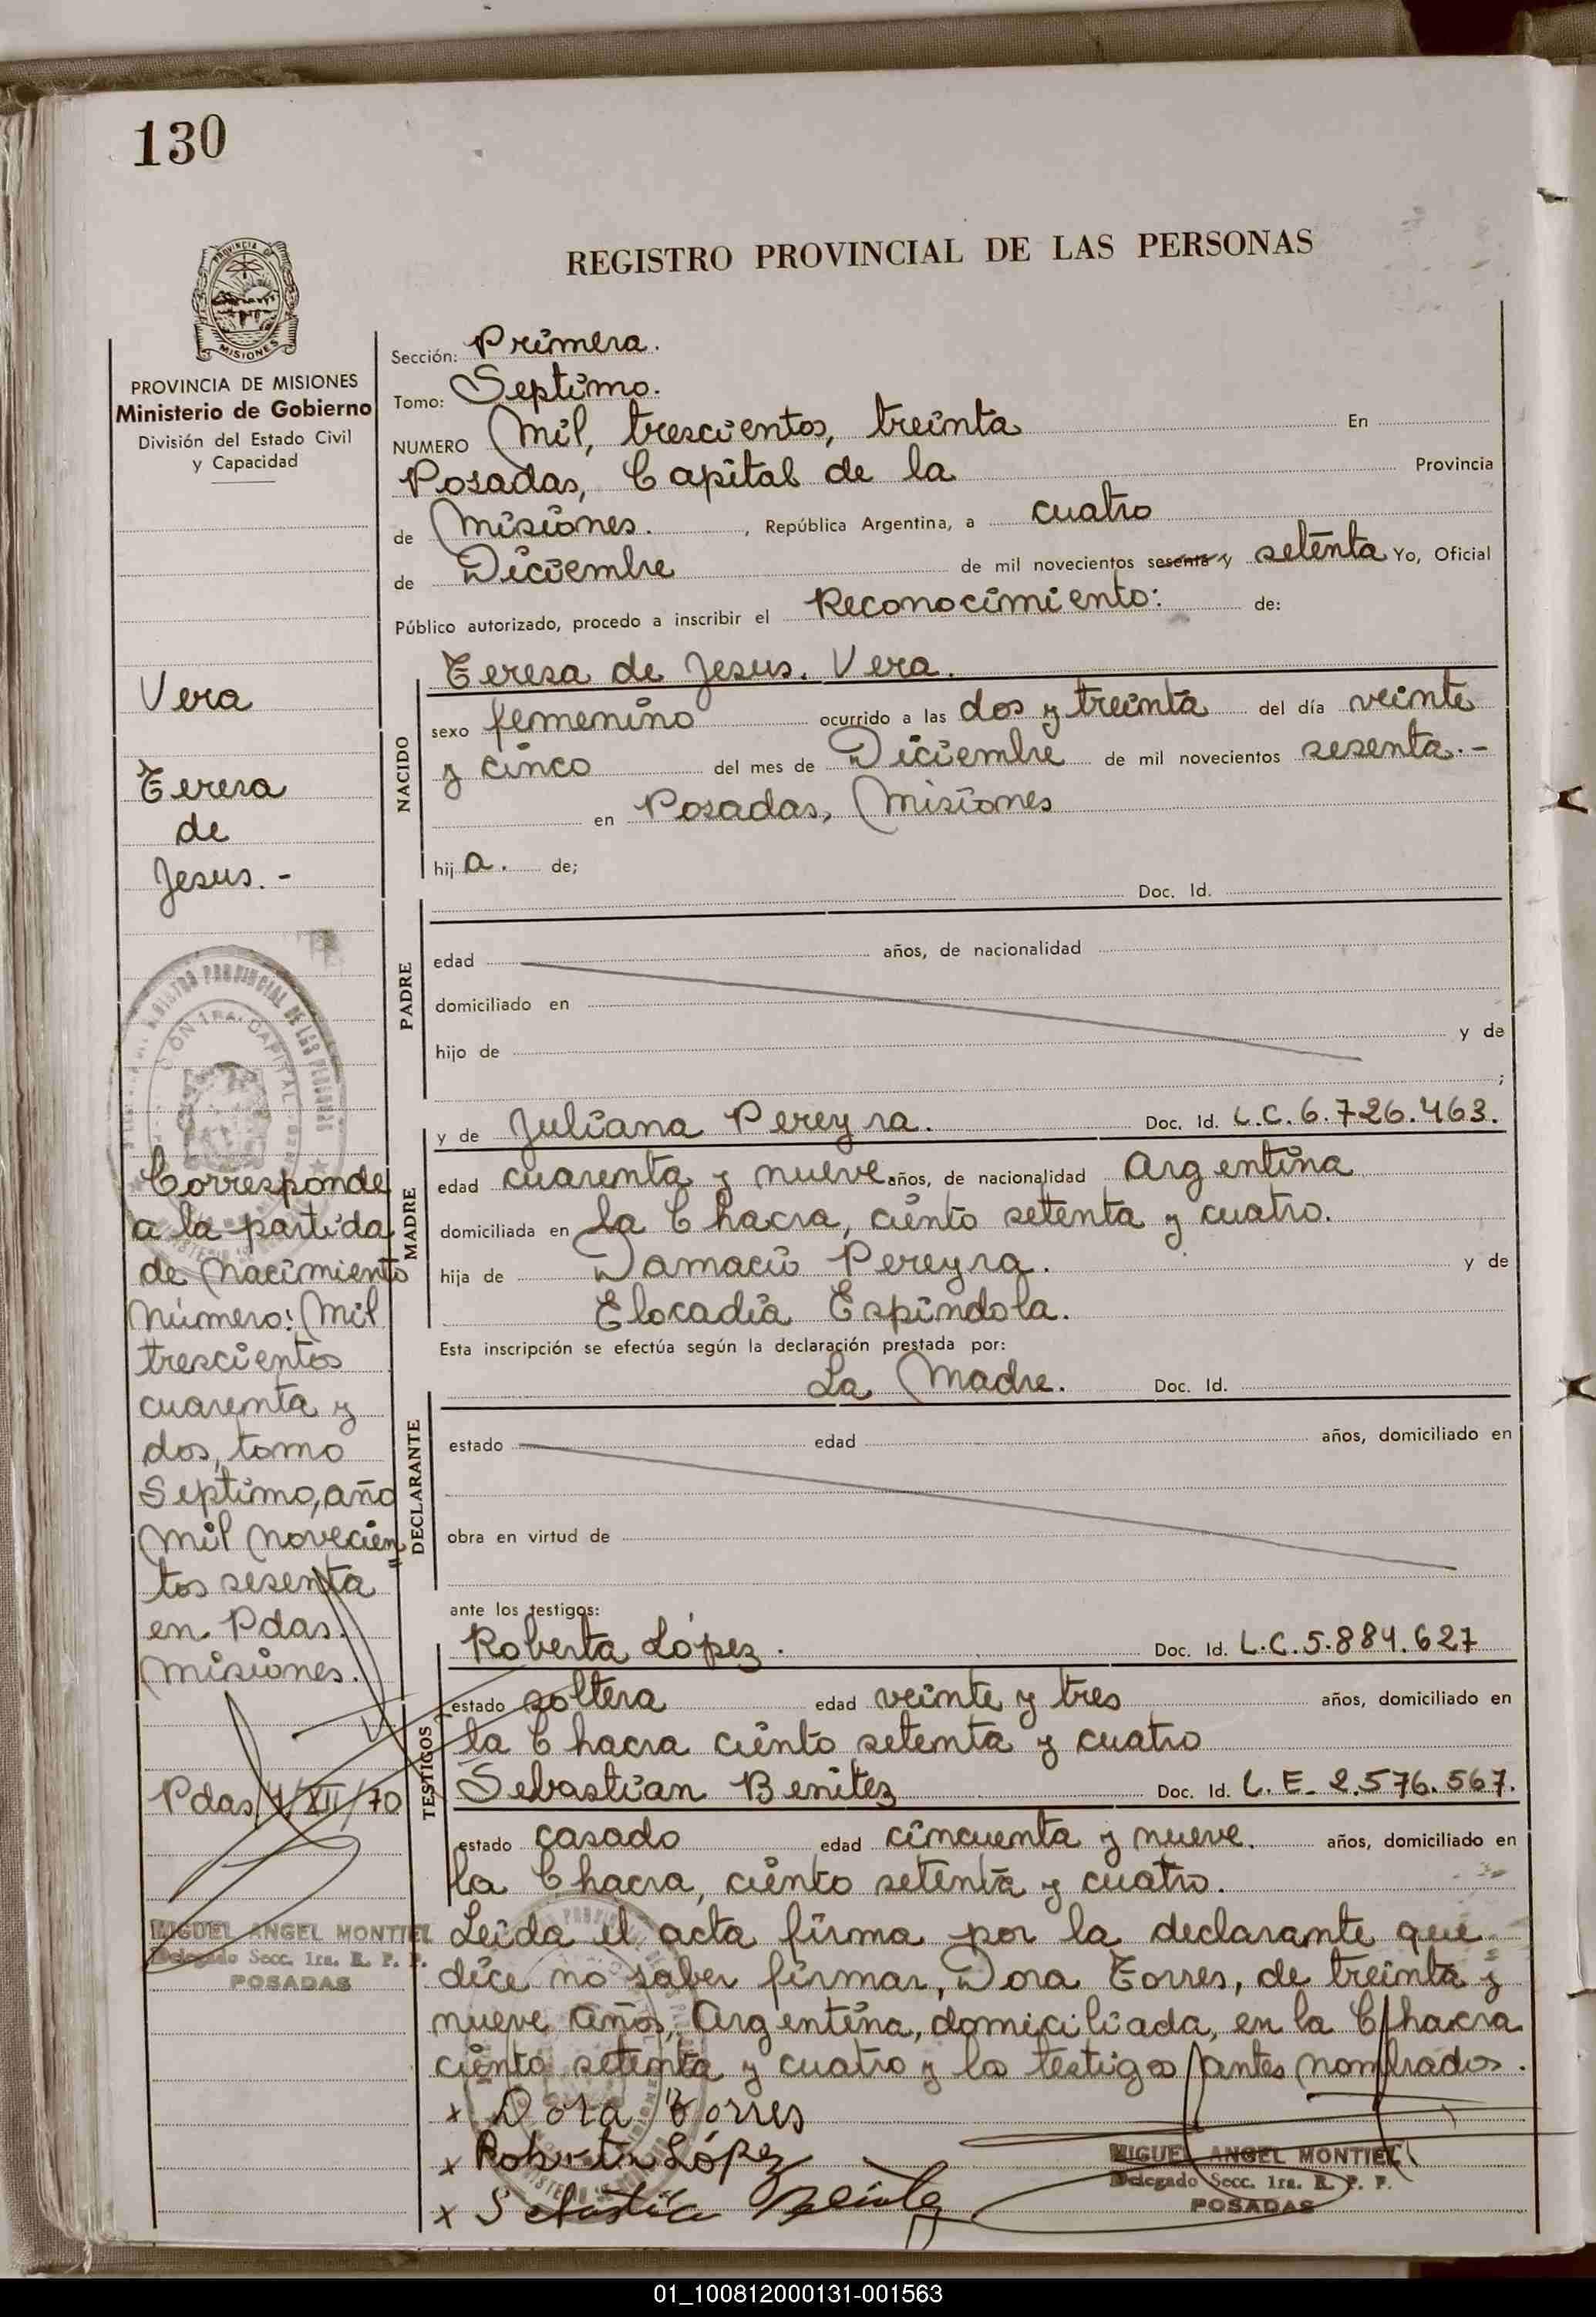 130
REGISTRO PROVINCIAL DE LAS PERSONAS
PROVINCIA DE MISIONES
Ministerio de Gobierno
División del Estado Civil
y Capacidad
Vera
Teresa
de
Jesus.-
Corresponde
a la partida
de Nacimiento
Número: Mil
trescientos
cuarenta y
dos, tomo
Septimo, año
Mil Novecien=
tos sesenta
en Pdas.
Misiones.
Pdas, 4/XII/70
MIGUEL ANGEL MONTIEL
Delegado Secc. 1ra. R. P. P.
POSADAS
Sección: Primera.
Tomo: Septimo.
NUMERO Mil, trescientos, treinta En
Posadas, Capital de la Provincia
de Misiones. , República Argentina, a cuatro
de Diciembre de mil novecientos sesenta y setenta Yo, Oficial
Público autorizado, procedo a inscribir el Reconocimiento: de:
NACIDO
Teresa de Jesus. Vera.
sexo femenino ocurrido a las dos y treinta del día veinte
y cinco del mes de Diciembre de mil novecientos sesenta.-
en Posadas, Misiones
hij a. de;
PADRE
Doc. Id.
edad años, de nacionalidad
domiciliado en
hijo de y de
;
MADRE
y de Juliana Pereyra. Doc. Id. L.C. 6.726.463.
edad cuarenta y nueve años, de nacionalidad Argentina
domiciliada en La Chacra, ciento setenta y cuatro.
hija de Damacio Pereyra. y de
Elocadia Espindola.
Esta inscripción se efectúa según la declaración prestada por:
DECLARANTE
La Madre. Doc. Id.
estado edad años, domiciliado en
obra en virtud de
ante los testigos:
TESTIGOS
Roberta López. Doc. Id. L.C. 5.884.627
estado soltera edad veinte y tres años, domiciliado en
la Chacra ciento setenta y cuatro
Sebastian Benitez Doc. Id. L.E. 2.576.567.
estado casado edad cincuenta y nueve. años, domiciliado en
la Chacra, ciento setenta y cuatro.
Leida el acta firma por la declarante que
dice no saber firmar, Dora Torres, de treinta y
nueve años, Argentina, domiciliada, en la Chacra
ciento setenta y cuatro y los testigos antes nombrados.
x Dora Torres
x Roberta López
x
MIGUEL ANGEL MONTIEL
Delegado Secc. 1ra. R. P. P.
POSADAS
01_100812000131-001563